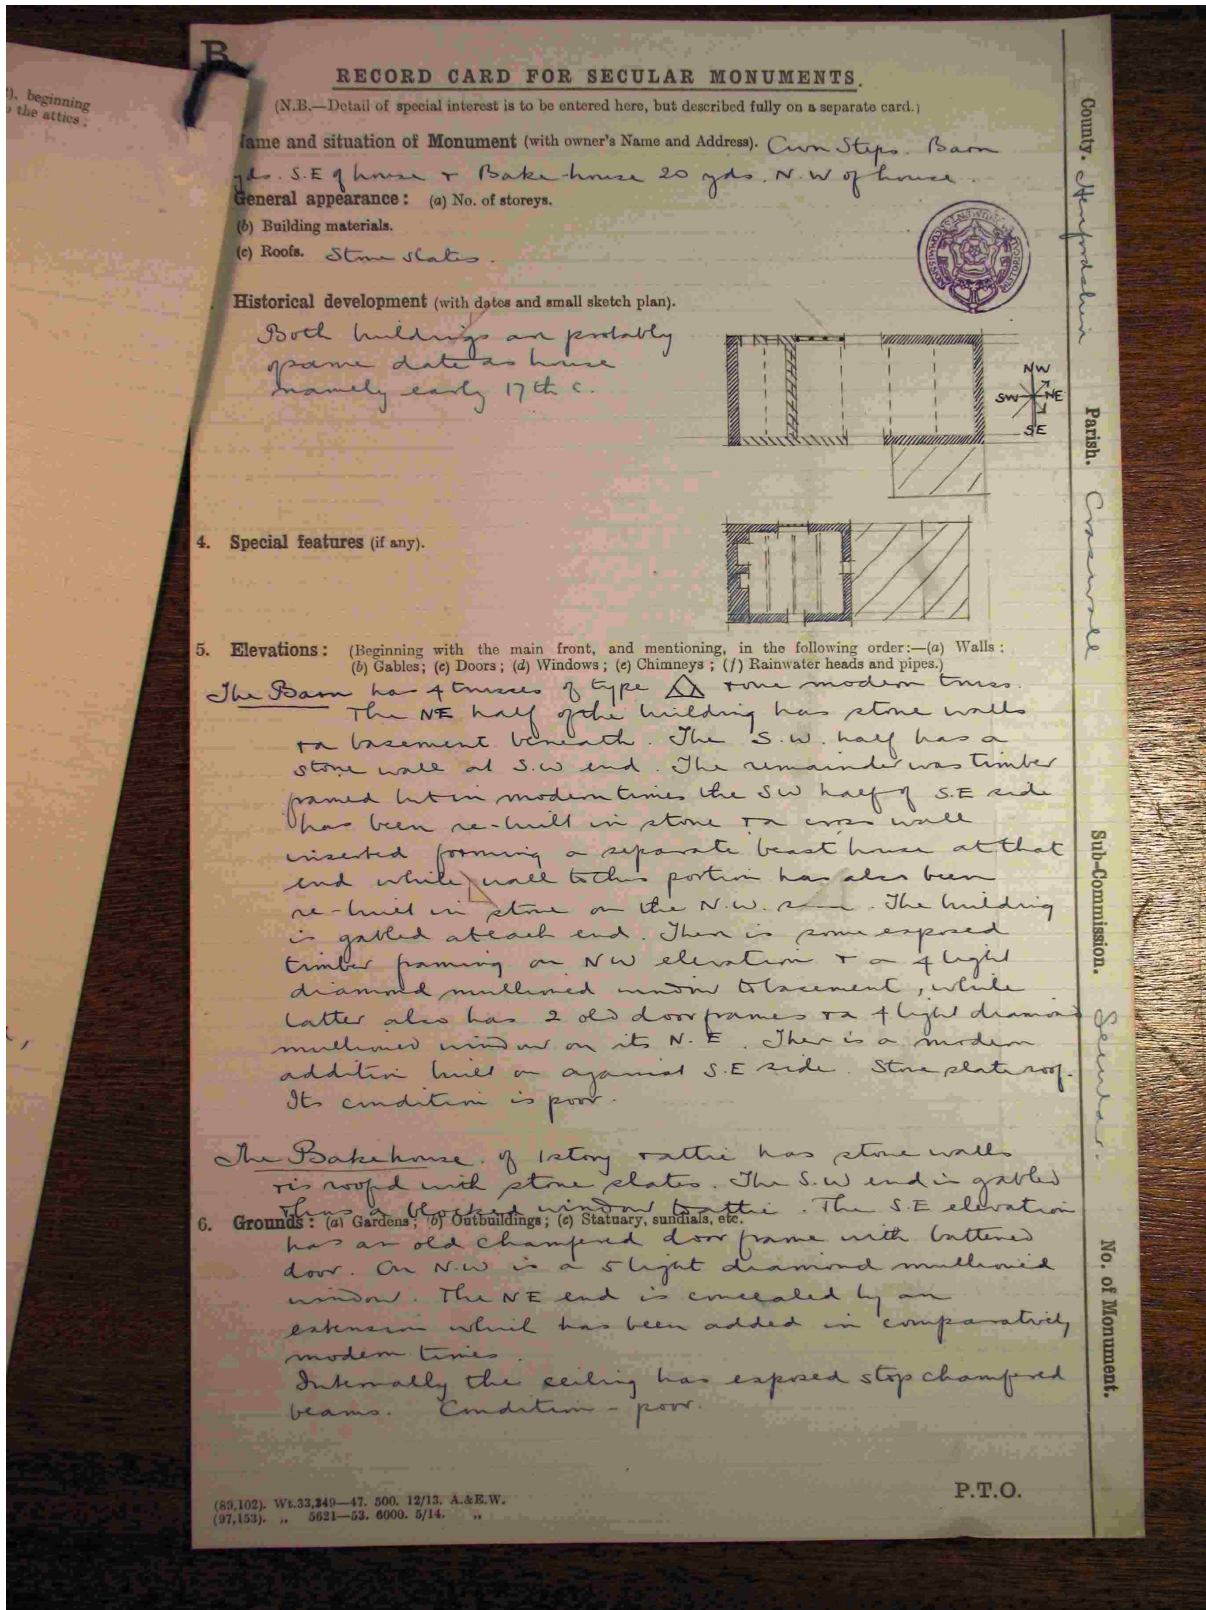 B
), beginning
the attics.
RECORD CARD FOR SECULAR MONUMENTS.
(N.B.—Detail of special interest is to be entered here, but described fully on a separate card.)
ame and situation of Monument (with owner's Name and Address). Cwm Steps. Barn
yds. S.E of house + Bake-house 20 yds. N.W of house.
General appearance: (a) No. of storeys.
(b) Building materials.
(c) Roofs. Stone slates.
Historical development (with dates and small sketch plan).
Both buildings are probably
of same date as house
namely early 17th c.
NW
SW NE
SE
4. Special features (if any).
5. Elevations: (Beginning with the main front, and mentioning, in the following order:—(a) Walls;
(b) Gables; (c) Doors; (d) Windows; (e) Chimneys; (f) Rainwater heads and pipes.)
The Barn has 4 trusses of type + one modern truss.
The NE half of the building has stone walls
+ a basement beneath. The S.W. half has a
stone wall at S.W end. The remainder was timber
framed but in modern times the SW half of S.E side
has been re-built in stone + a cross wall
inserted forming a separate beast house at that
end while wall to this portion has also been
re-built in stone on the N.W. The building
is gabled at each end. There is some exposed
timber framing on NW elevation + a 4 light
diamond mullioned window to basement, while
latter also has 2 old door frames + a 4 light diamond
mullioned window on its N.E. There is a modern
addition built on against S.E side. Stone slate roof.
Its condition is poor.
The Bakehouse. of 1 story + attic has stone walls
+ is roofed with stone slates. The S.W end is gabled
+ has a blocked window to attic. The S.E elevation
6. Grounds: (a) Gardens; (b) Outbuildings; (c) Statuary, sundials, etc.
has an old chamfered door frame with battened
door. On N.W is a 5 light diamond mullioned
window. The NE end is concealed by an
extension which has been added in comparatively
modern times.
Internally the ceiling has exposed stop chamfered
beams. Condition - poor.
P.T.O.
(89,102). Wt.33,349—47. 500. 12/13. A.&E.W.
(97,153). „ 5621—53. 6000. 5/14. „
County. Herefordshire
Parish. Craswall
Sub-Commission.
No. of Monument.